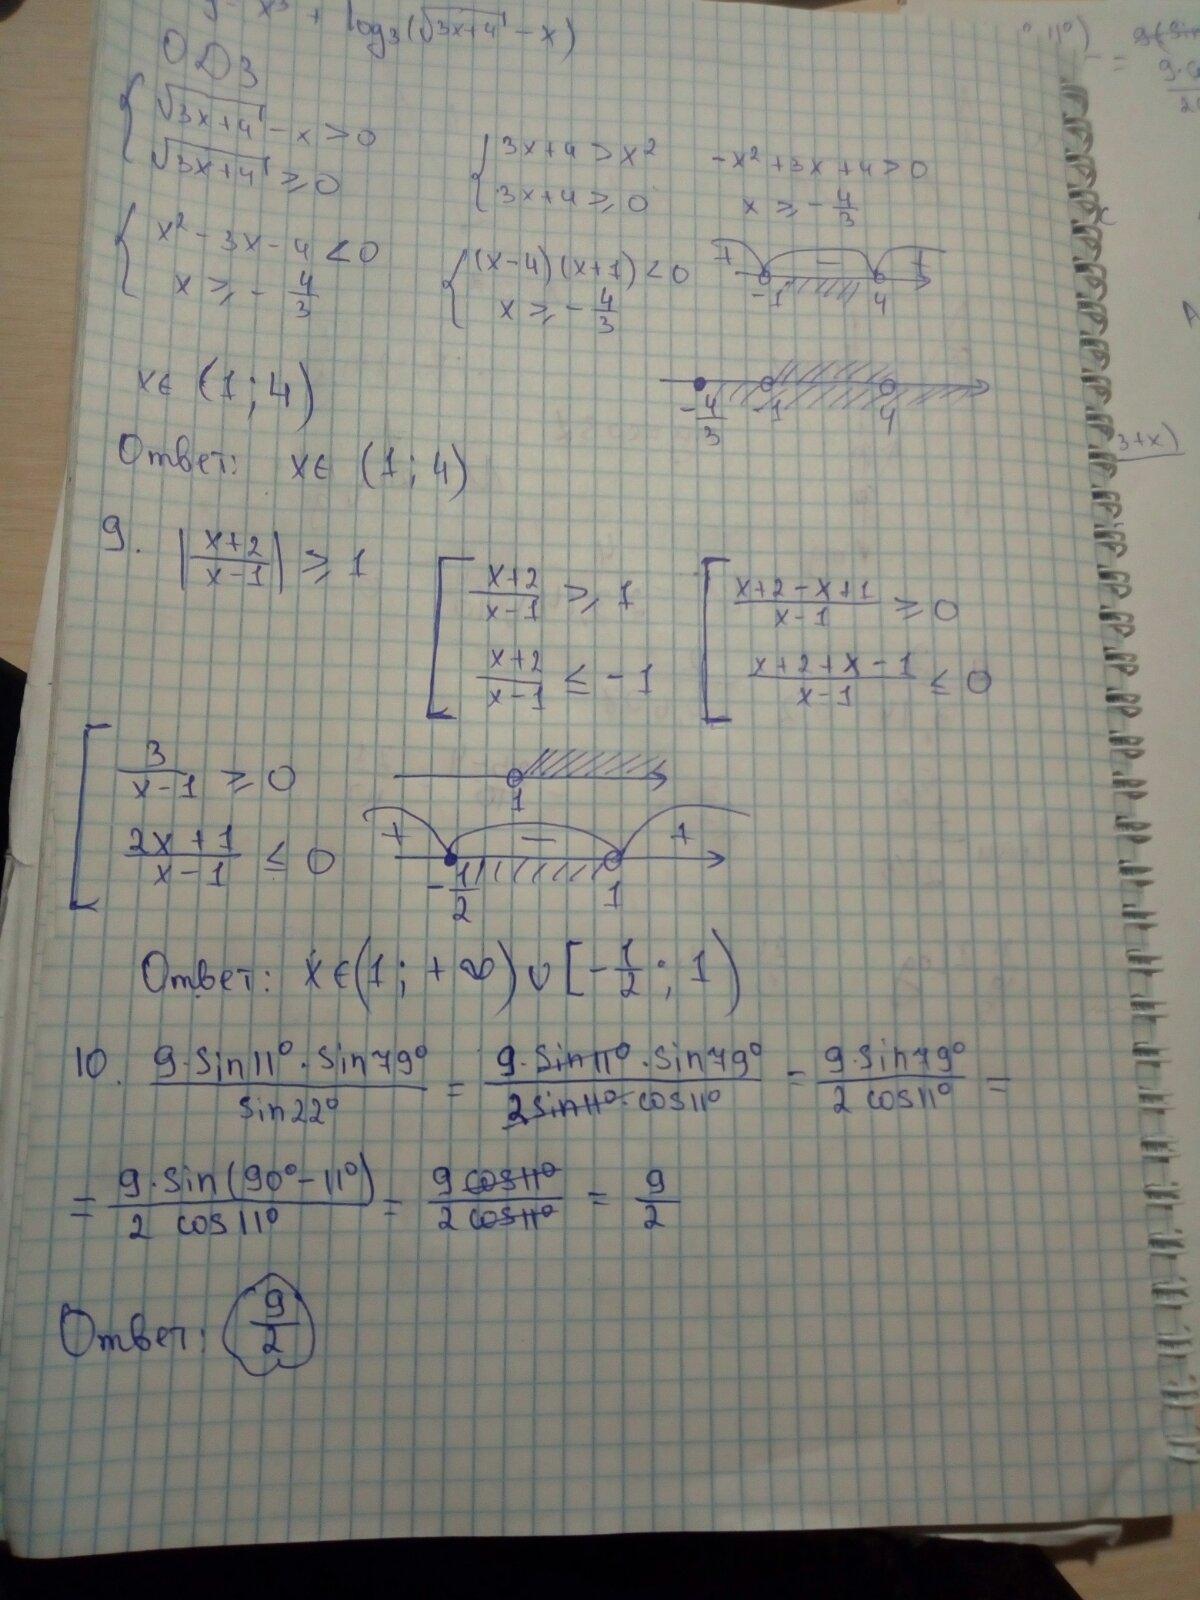 y= x³ + log₃(√(3x+4) - x)
ОДЗ
{ √(3x+4) - x > 0
√(3x+4) ≥ 0
{ 3x+4 > x²
3x+4 ≥ 0
-x² + 3x + 4 > 0
x ≥ - 4/3
{ x² - 3x - 4 < 0
x ≥ - 4/3
{ (x-4)(x+1) < 0
x ≥ - 4/3
+ − +
-1 4
x∈ (1; 4)
-4/3 -1 4
Ответ: x∈ (1; 4)
9. |(x+2)/(x-1)| ≥ 1
[ (x+2)/(x-1) ≥ 1
(x+2)/(x-1) ≤ -1
[ (x+2-x+1)/(x-1) ≥ 0
(x+2+x-1)/(x-1) ≤ 0
[ 3/(x-1) ≥ 0
(2x+1)/(x-1) ≤ 0
1
+ − +
-1/2 1
Ответ: x∈(1; +∞) ∪ [-1/2; 1)
10. (9·sin11°·sin79°)/(sin22°) = (9·sin11°·sin79°)/(2sin11°·cos11°) = (9·sin79°)/(2 cos11°) =
= (9·sin(90°-11°))/(2 cos11°) = (9 cos11°)/(2 cos11°) = 9/2
Ответ: 9/2
3+x)